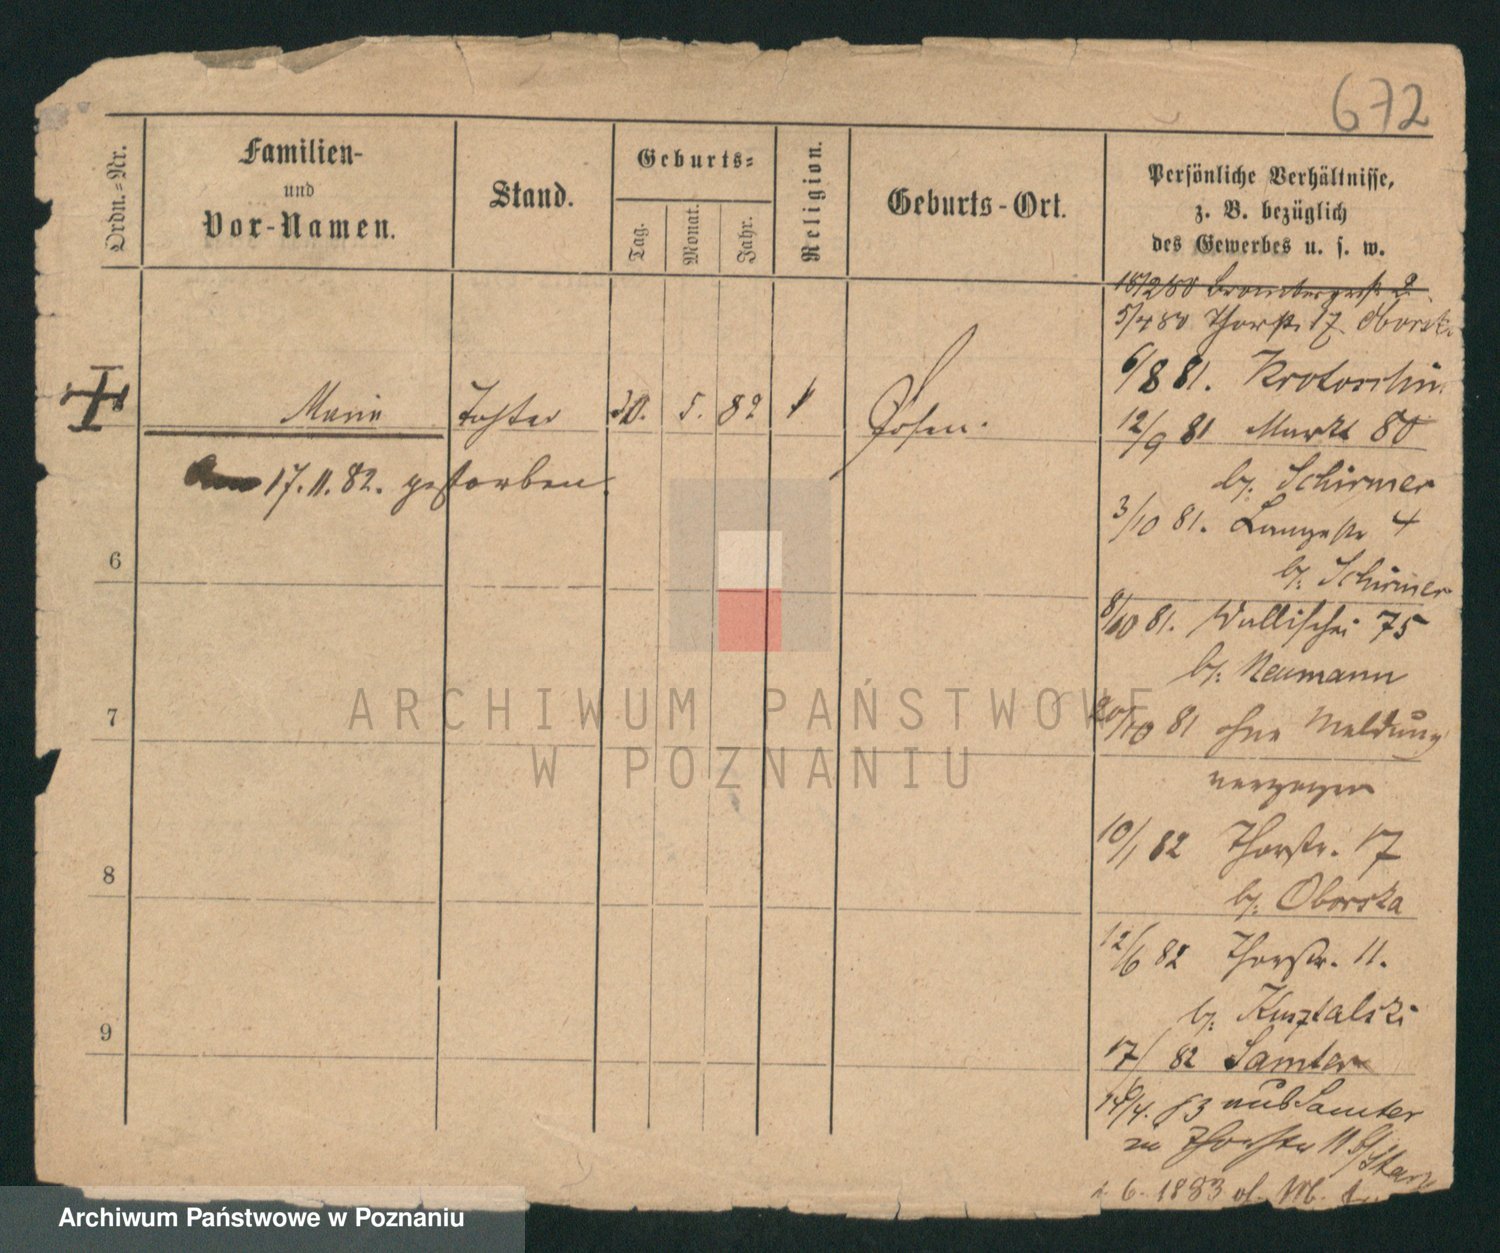 672
Ordn.-Nr.
Familien-
und
Vor-Namen.
Stand.
Geburts-
Tag.
Monat.
Jahr.
Religion.
Geburts-Ort.
Persönliche Verhältnisse,
z. B. bezüglich
des Gewerbes u. s. w.
Marie Tochter 5. 82 Posen.
17. 11. 82. gestorben
6
7
8
9
18/2 80 Brombergerstr. 2
5/4 80 Thorstr. 17 Oborska
6/8 81. Krotoschin
12/9 81 Markt 80
b/. Schirmer
3/10 81. Langestr 4
b/. Schirmer
8/10 81. Wallischei 75
b/. Neumann
20/10 81 ohne Meldung
verzogen
10/1 82 Thorstr. 17
b/. Oborska
12/6 82 Thorstr. 11.
b/.
17/ 82 Samter
14/4. 83 aus Samter
Thorstr 11 b/
6. 1883
ARCHIWUM PAŃSTWOWE
W POZNANIU
Archiwum Państwowe w Poznaniu